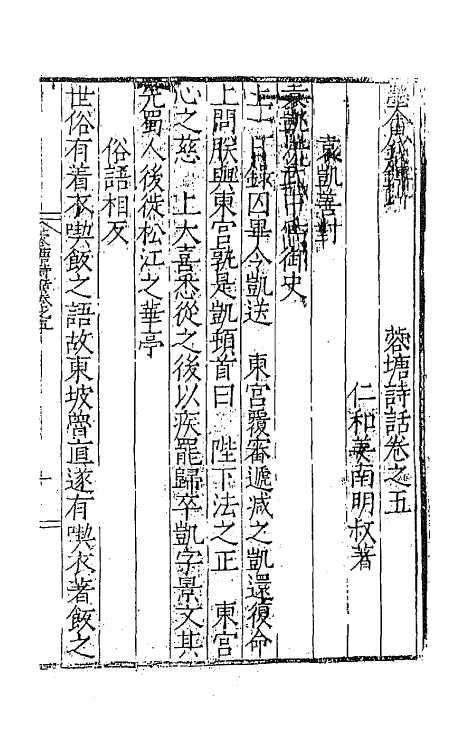 蓉塘詩話卷之五
仁和姜南明叔著
袁凱善對
袁凱洪武中爲御史
上一日録囚畢令凱送　東宮覆審遞减之凱還復命
上問朕與東宮孰是凱頓首曰　陛下法之正　東宮
心之慈　上大喜悉從之後以疾罷歸卒凱字景文其
先蜀人後徙松江之華亭
俗語相反
世俗有着衣喫飯之語故東坡
魯直遂有喫衣著飯之
蓉塘詩話卷之五